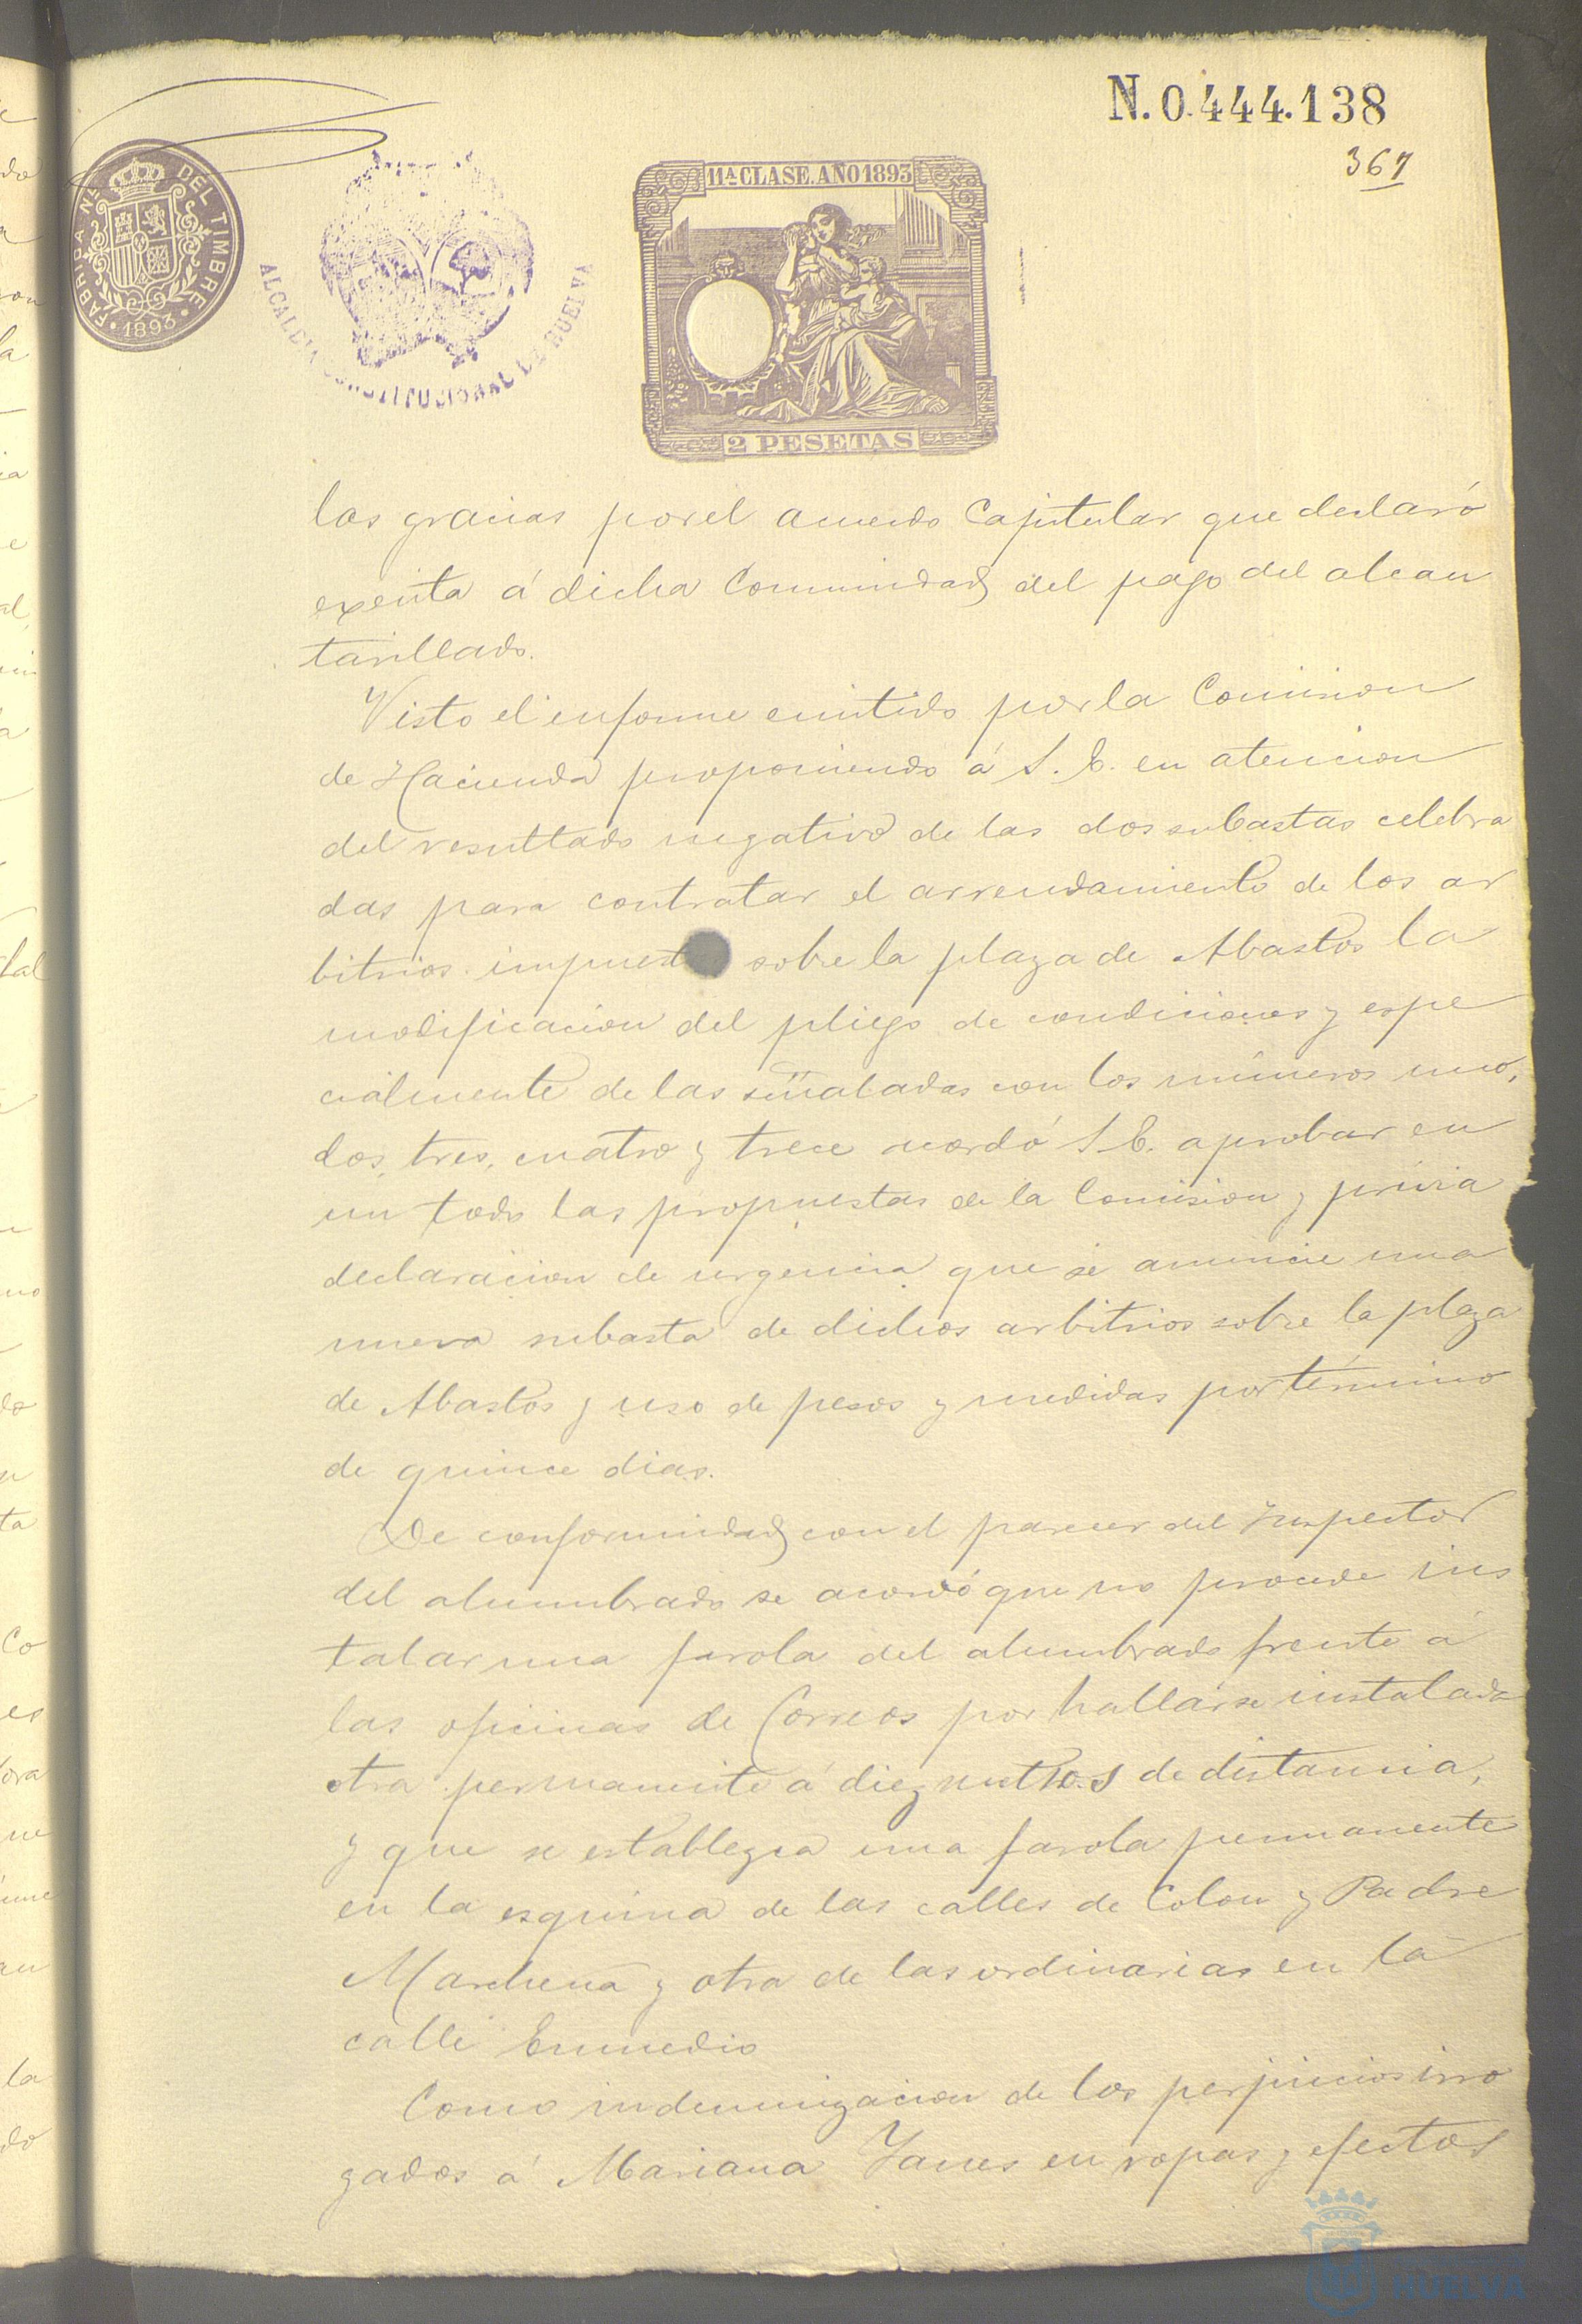 N.0.444.138
367
FABRICA NL DEL TIMBRE
1893
ALCALDIA CONSTITUCIONAL DE HUELVA
11ª CLASE. AÑO 1893
2 PESETAS
las gracias por el acuerdo Capitular que declaró
exenta á dicha Comunidad del pago del alcan
tarillado.
Visto el informe emitido por la Comision
de Hacienda proponiendo á S. E. en atencion
del resultado negativo de las dos subastas celebra
das para contratar el arrendamiento de los ar
bitrios impuest sobre la plaza de Abastos la
modificacion del pliego de condiciones y espe
cialmente de las señaladas con los números uno,
dos, tres, cuatro y trece acordó S E. aprobar en
un todo las propuestas de la Comision y prévia
declaracion de urgencia que se anuncie una
nueva subasta de dichos arbitrios sobre la plaza
de Abastos y uso de pesos y medidas por término
de quince dias.
De conformidad con el parecer del Inspector
del alumbrado se acordó que no procede ins
talar una farola del alumbrado frente á
las oficinas de Correos por hallarse instalada
otra permanente á diez metros de distancia,
y que se establezca una farola permanente
en la esquina de las calles de Colon y Padre
Marchena y otra de las ordinarias en la
calle Enmedio
Como indemnizacion de los perjuicios irro
gados á Mariana Yanes en ropas y efectos
HUELVA